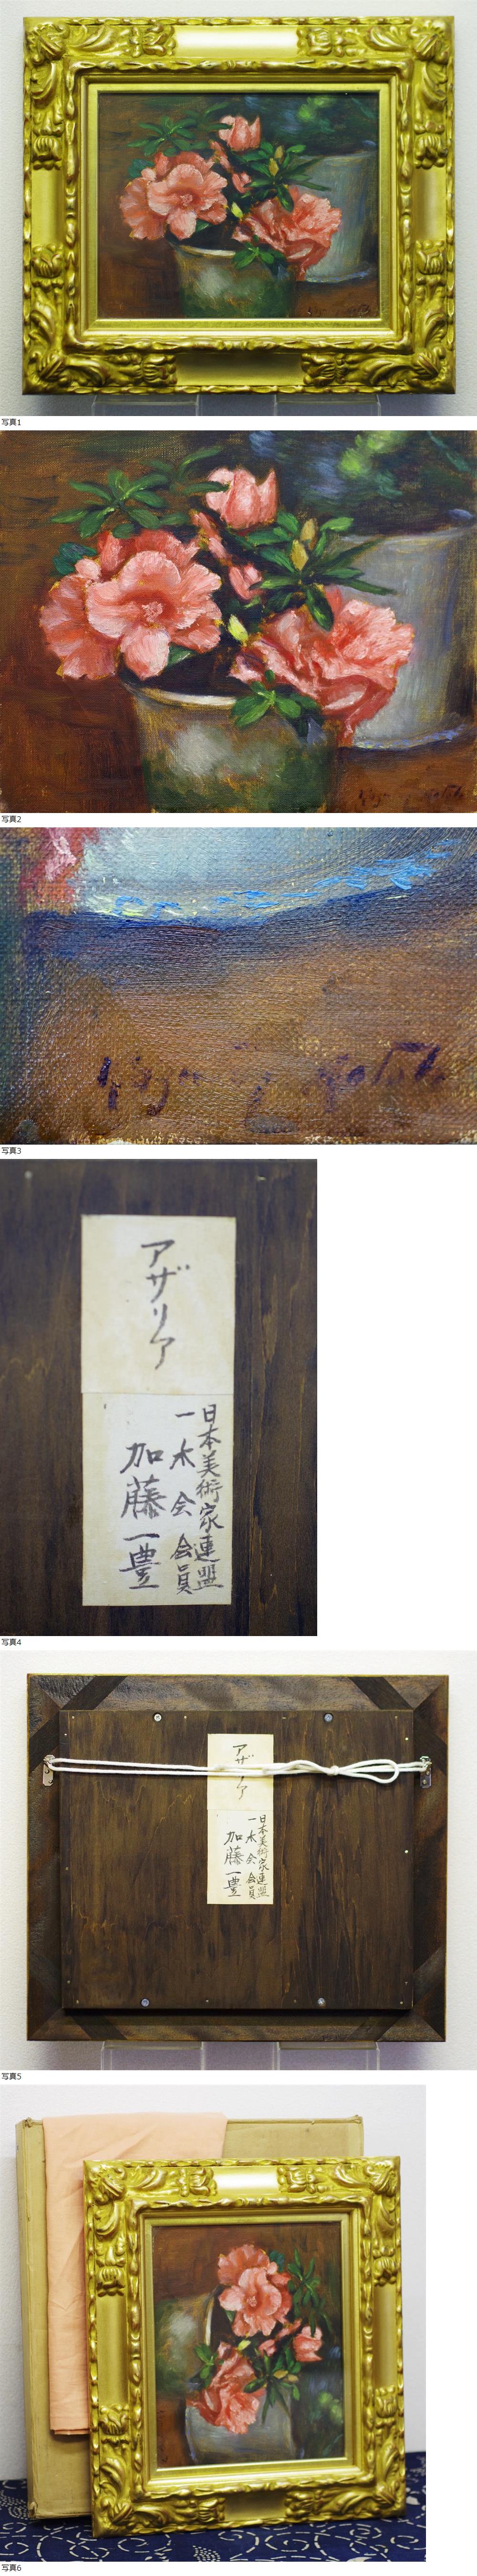 写真1
写真2
写真3
アザリア
日本美術家連盟
一水会 会員
加藤一豊
写真4
アザリア
日本美術家連盟
一水会 会員
加藤一豊
写真5
写真6